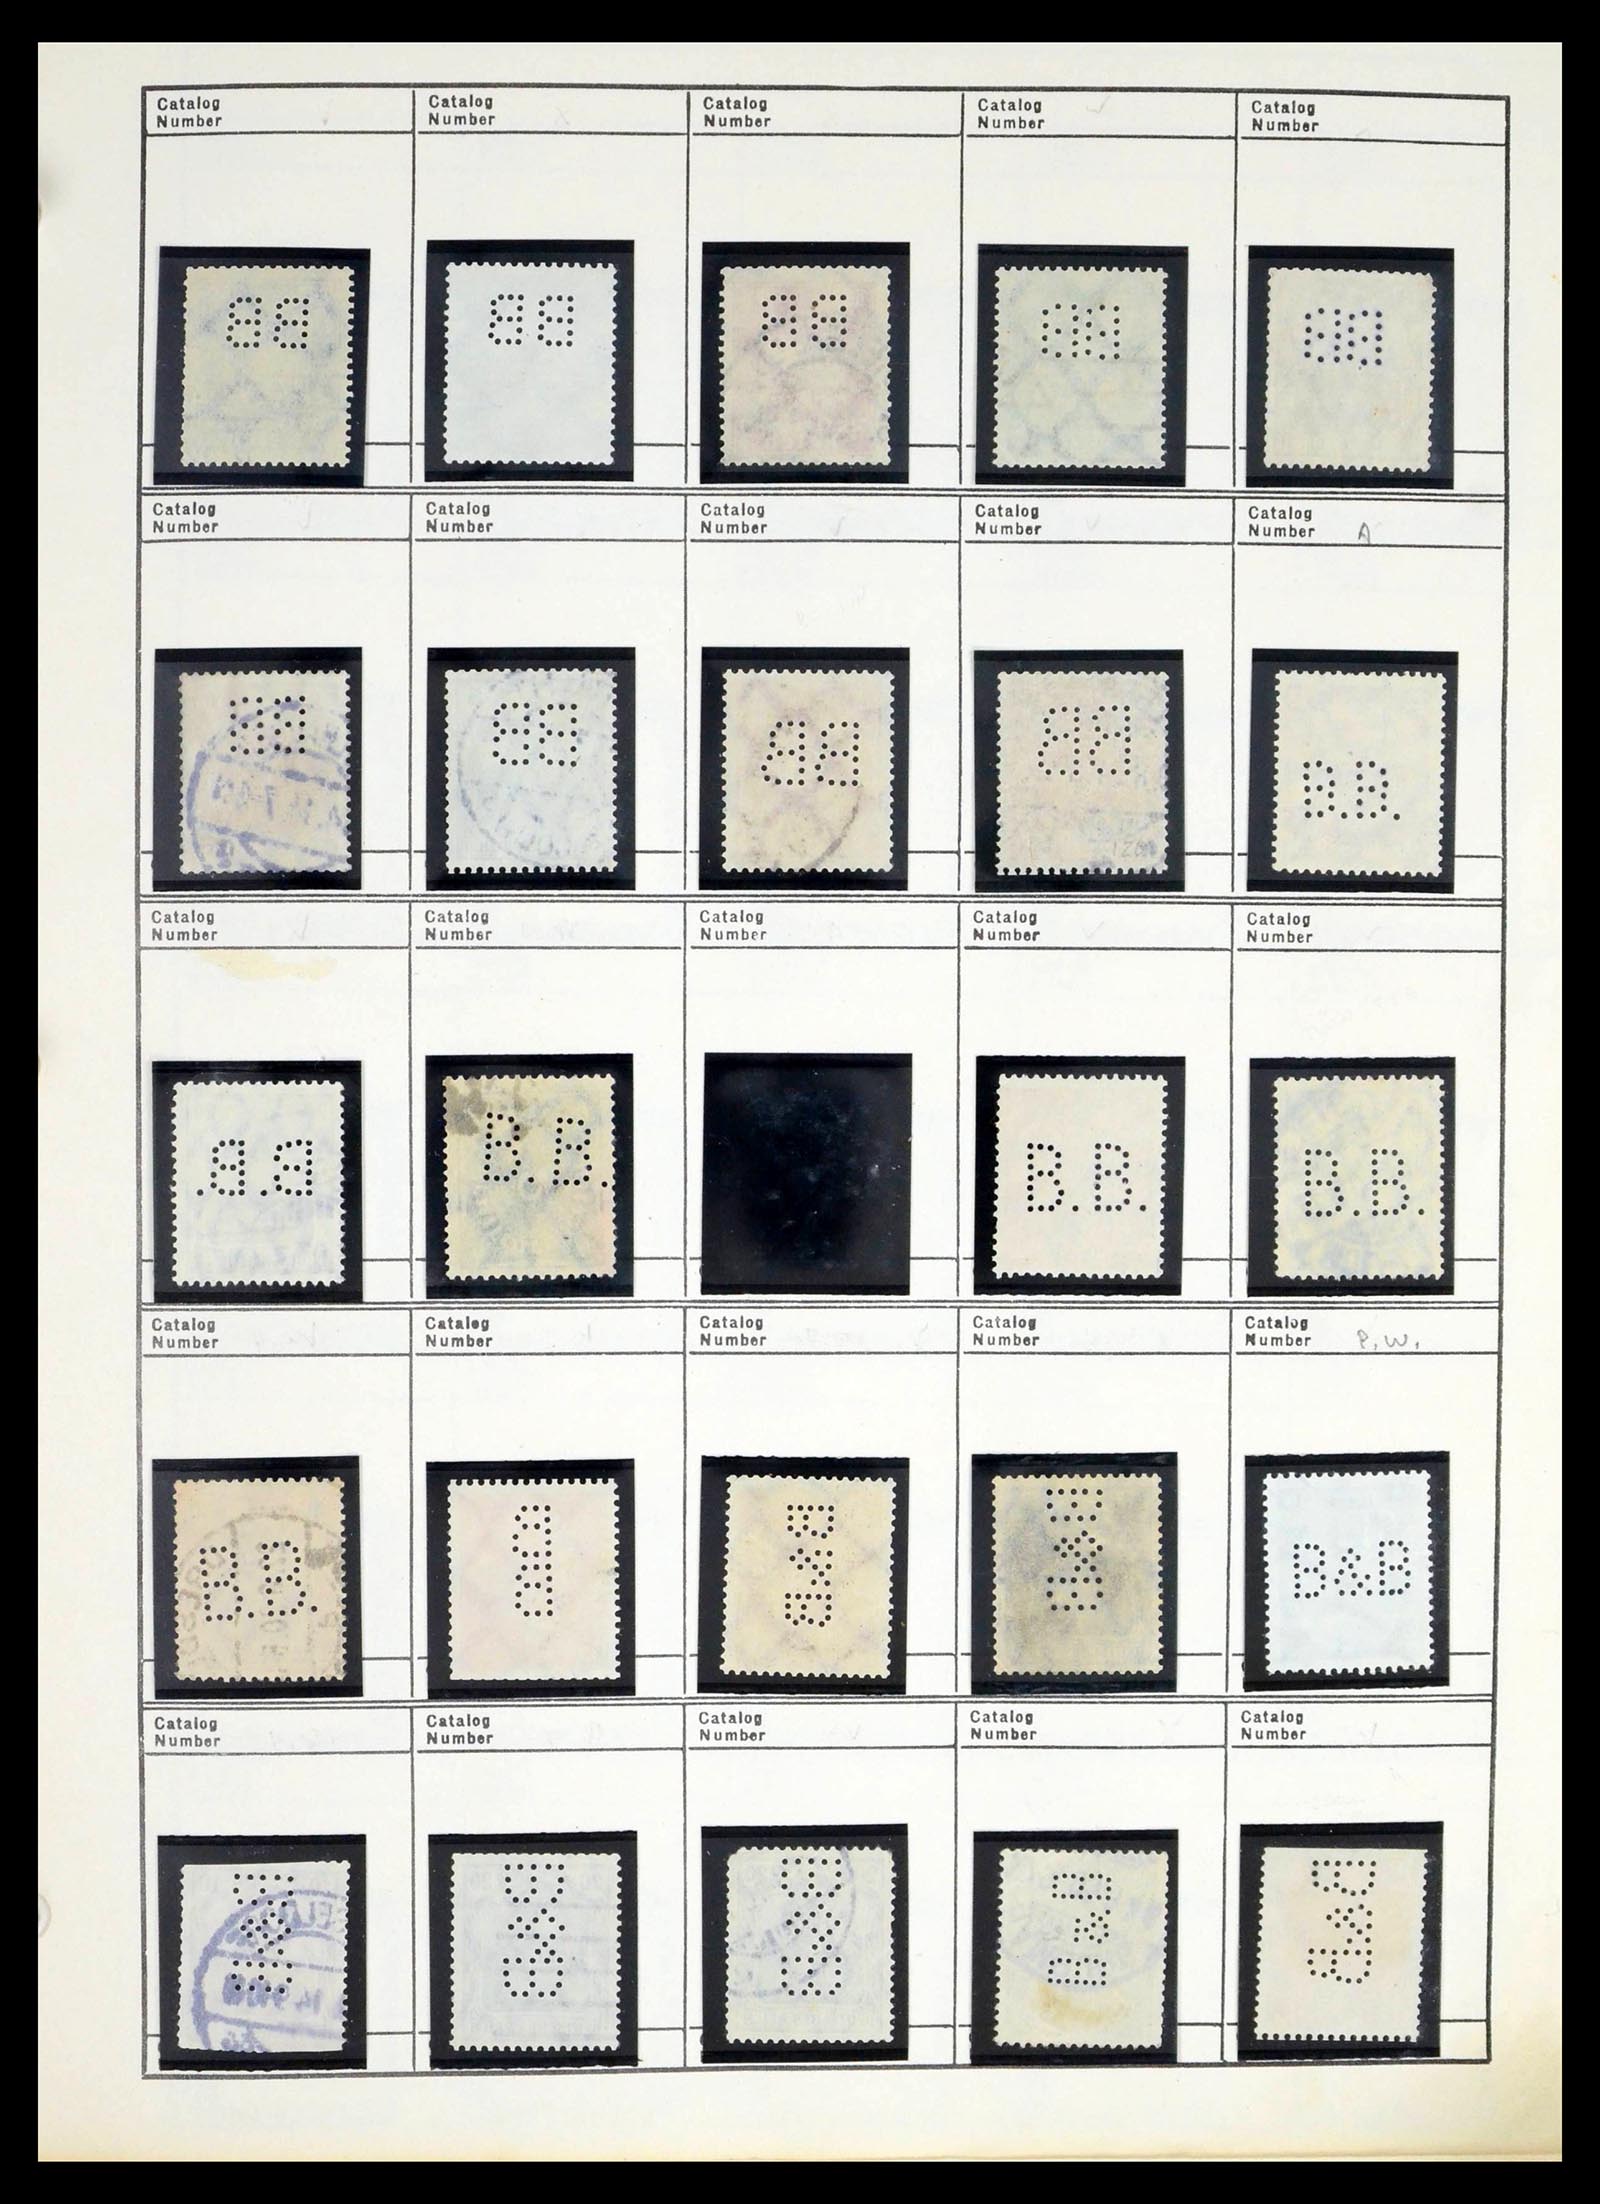 Catalog Number
Catalog Number
Catalog Number
Catalog Number
Catalog Number
BB
BB
BB
BB
BB
Catalog Number
Catalog Number
Catalog Number
Catalog Number
Catalog Number A
BB
BB
BB
BB
B.B.
Catalog Number
Catalog Number
Catalog Number
Catalog Number
Catalog Number
B.B.
B.B.
B.B.
B.B.
Catalog Number
Catalog Number
Catalog Number
Catalog Number
Catalog Number P.W.
B.B.
BB
B&B
B&B
B&B
Catalog Number
Catalog Number
Catalog Number
Catalog Number
Catalog Number
B&B
B&B
B&B
B&B
B&B